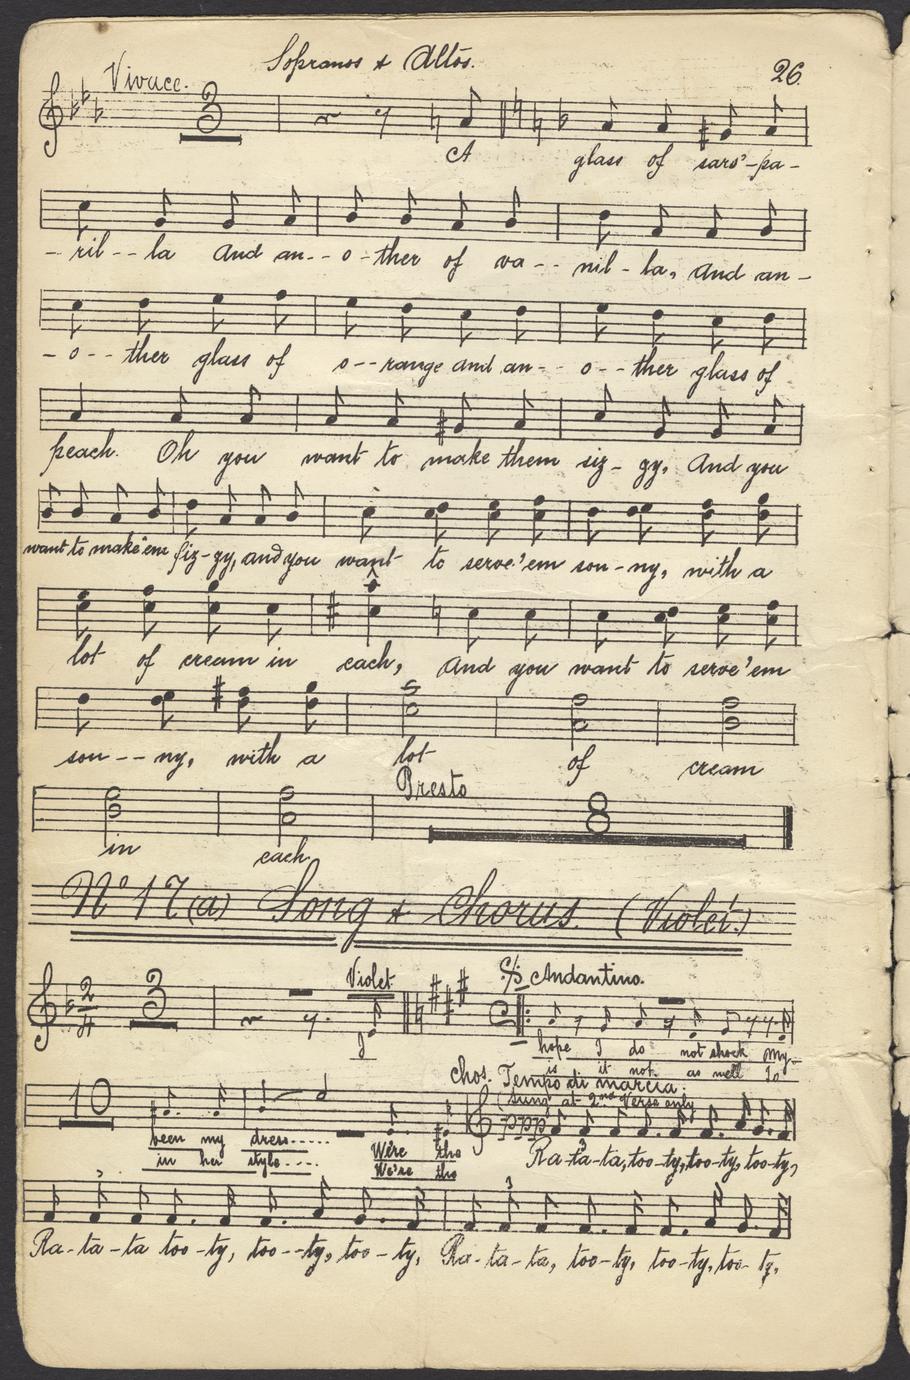 Sopranos & Altos.
26.
Vivace.
3
A glass of sars'-pa-
- ril -- la And an -- o - ther of va -- nil - la, And an -
- o -- ther glass of o -- range and an -- o -- ther glass of
peach. Oh you want to make them siz - zy, And you
want to make 'em fiz - zy, and you want to serve 'em son - ny, with a
lot of cream in each, And you want to serve 'em
son -- ny, with a lot of cream
Presto
8
in each.
No 17 (a) Song & Chorus. (Violet.)
2/4 3 Violet 𝄋 Andantino.
I hope I do not shock My-
is it not as well To
Chos. Tempo di marcia.
(Sung at 2nd Verse only
10
been my dress..... We're tho
in her style.... We're tho
Ra-ta-ta, too-ty, too-ty, too-ty,
3
Ra - ta - ta too - ty, too -- ty, too - ty, Ra - ta - ta, too - ty, too - ty, too - ty,